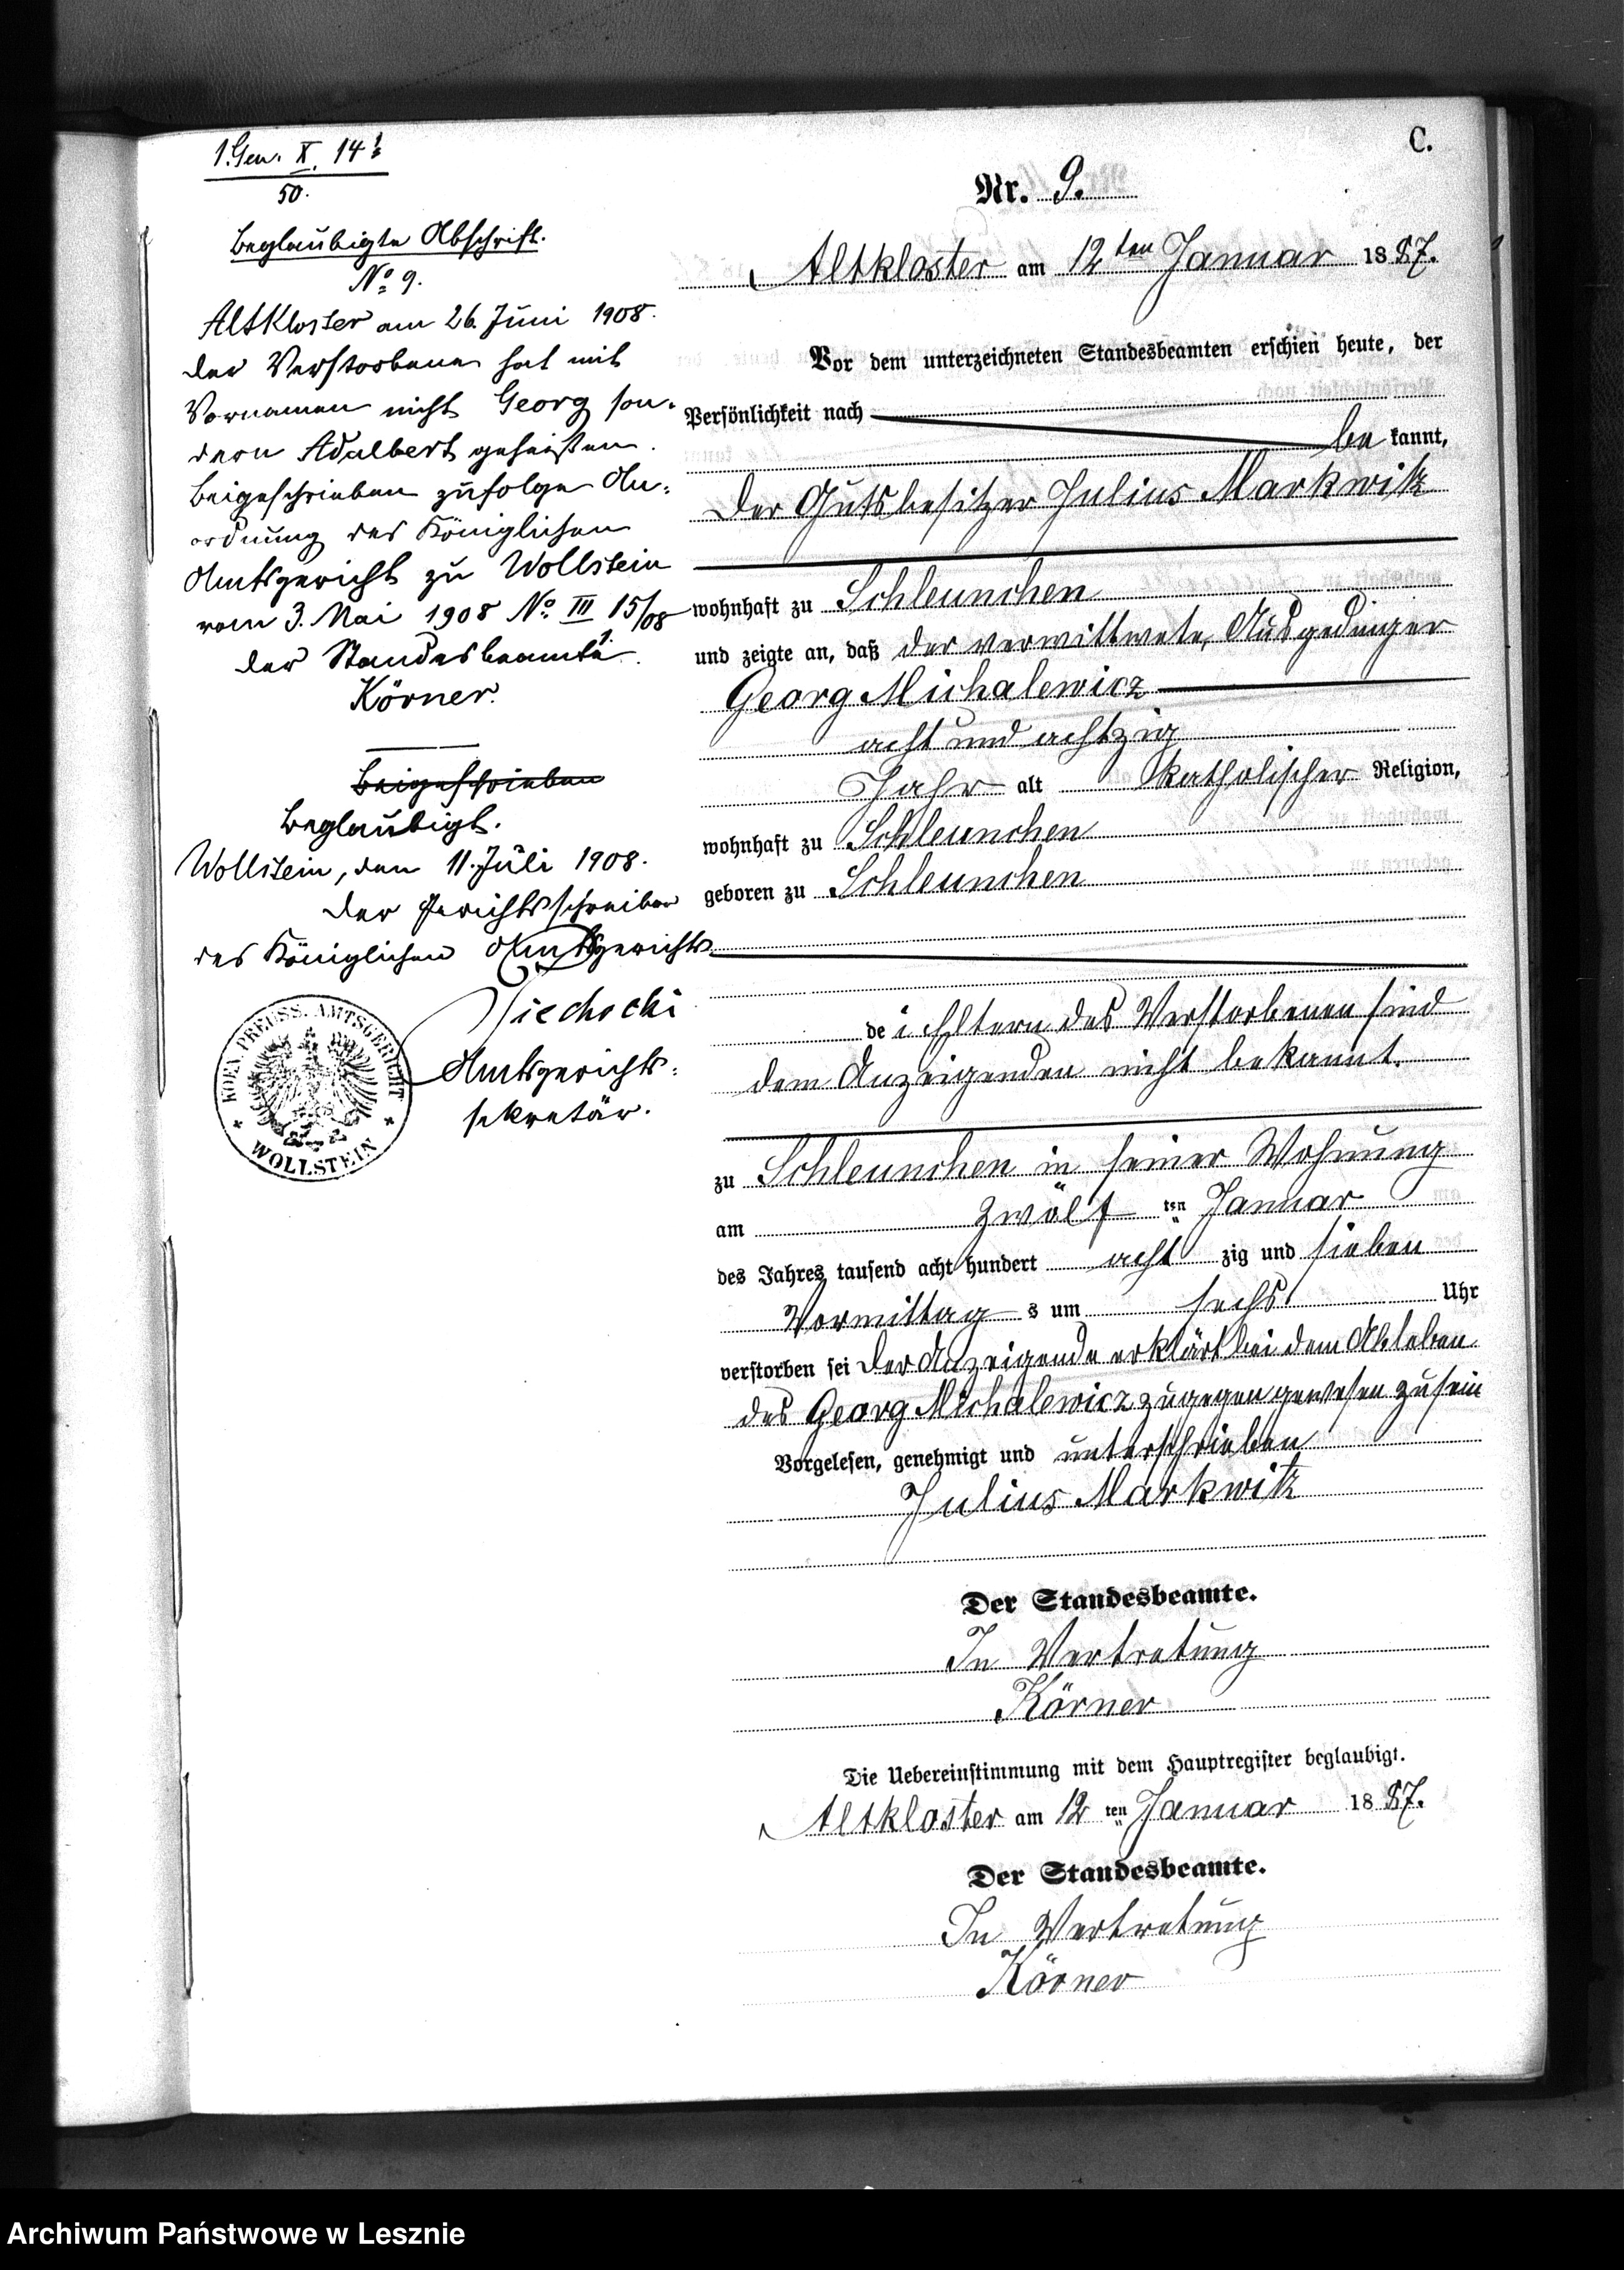 C.
Nr. 9.
Altkloster am 12ten Januar 1887.
Vor dem unterzeichneten Standesbeamten erschien heute, der
Persönlichkeit nach
be kannt,
der Gutsbesitzer Julius Markwitz
wohnhaft zu Schleunchen
und zeigte an, daß der verwittwete, Ausgedinger
Georg Michalewicz
acht und achtzig
Jahr alt katholischer Religion,
wohnhaft zu Schleunchen
geboren zu Schleunchen
dei Eltern des Verstorbenen sind
dem Anzeigenden nicht bekannt.
zu Schleunchen in seiner Wohnung
am zwölf ten Januar
des Jahres tausend acht hundert acht zig und sieben
Vormittag s um sechs Uhr
verstorben sei der Anzeigende erklärt bei dem Ableben
des Georg Michalewicz zugegen gewesen zu sein
Vorgelesen, genehmigt und unterschrieben
Julius Markwitz
Der Standesbeamte.
In Vertretung
Körner
Die Uebereinstimmung mit dem Hauptregister beglaubigt.
Altkloster am 12 ten Januar 1887.
Der Standesbeamte.
In Vertretung
Körner
1. Gen. X. 14
50.
Beglaubigte Abschrift.
No 9.
Altkloster am 26. Juni 1908.
Der Verstorbene hat mit
Vornamen nicht Georg son-
dern Adalbert geheißen.
Beigeschrieben zufolge An-
ordnung des Königlichen
Amtsgericht zu Wollstein
vom 3. Mai 1908 No III 15/08
Der Standesbeamte.
Körner.
Beigeschrieben
Beglaubigt.
Wollstein, den 11. Juli 1908.
Der Gerichtsschreiber
des Königlichen Amtsgerichts
Amtsgerichts-
sekretär.
KOEN. PREUSS. AMTSGERICHT
WOLLSTEIN
Archiwum Państwowe w Lesznie